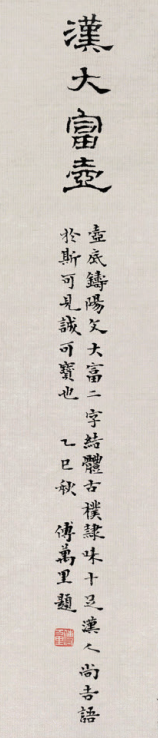 漢大富壺
壺底鑄陽文大富二字結體古樸隸味十足漢人尚吉語
於斯可見誠可寶也 乙巳秋 傅萬里題